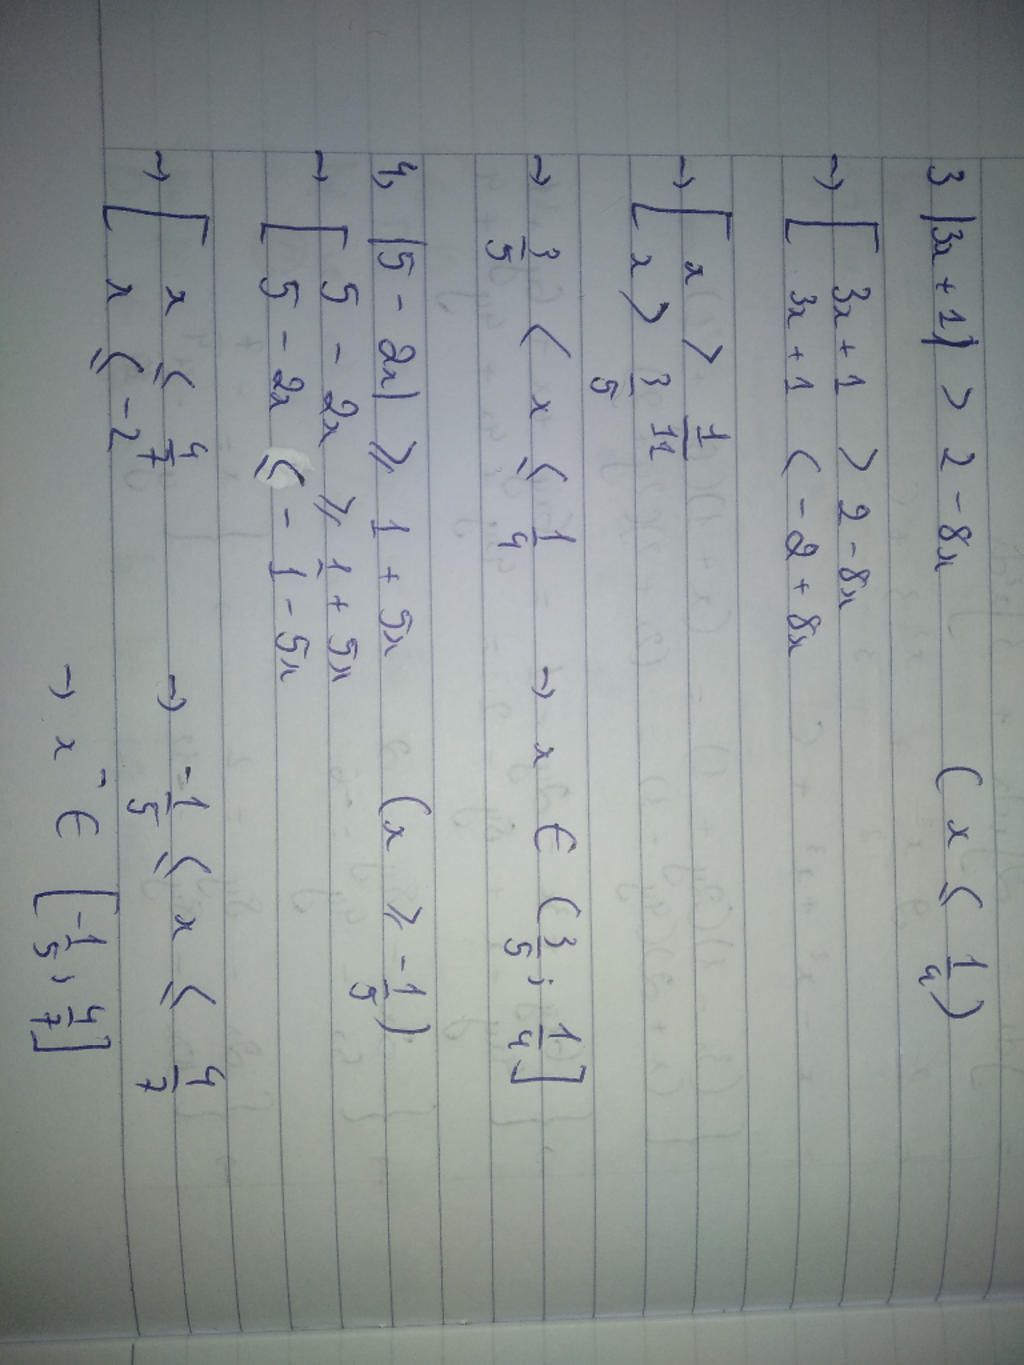 3 |3x + 1| > 2 - 8x ( x ≤ 1/4 )
→ [ 3x + 1 > 2 - 8x
3x + 1 < - 2 + 8x
→ [ x > 1/11
x > 3/5
→ 3/5 < x ≤ 1/4 → x ∈ ( 3/5 ; 1/4 ]
4, |5 - 2x| ≥ 1 + 5x ( x ≥ -1/5 )
→ [ 5 - 2x ≥ 1 + 5x
5 - 2x ≤ - 1 - 5x
→ [ x ≤ 4/7 → -1/5 ≤ x ≤ 4/7
x ≤ -2
→ x ∈ [ -1/5 ; 4/7 ]